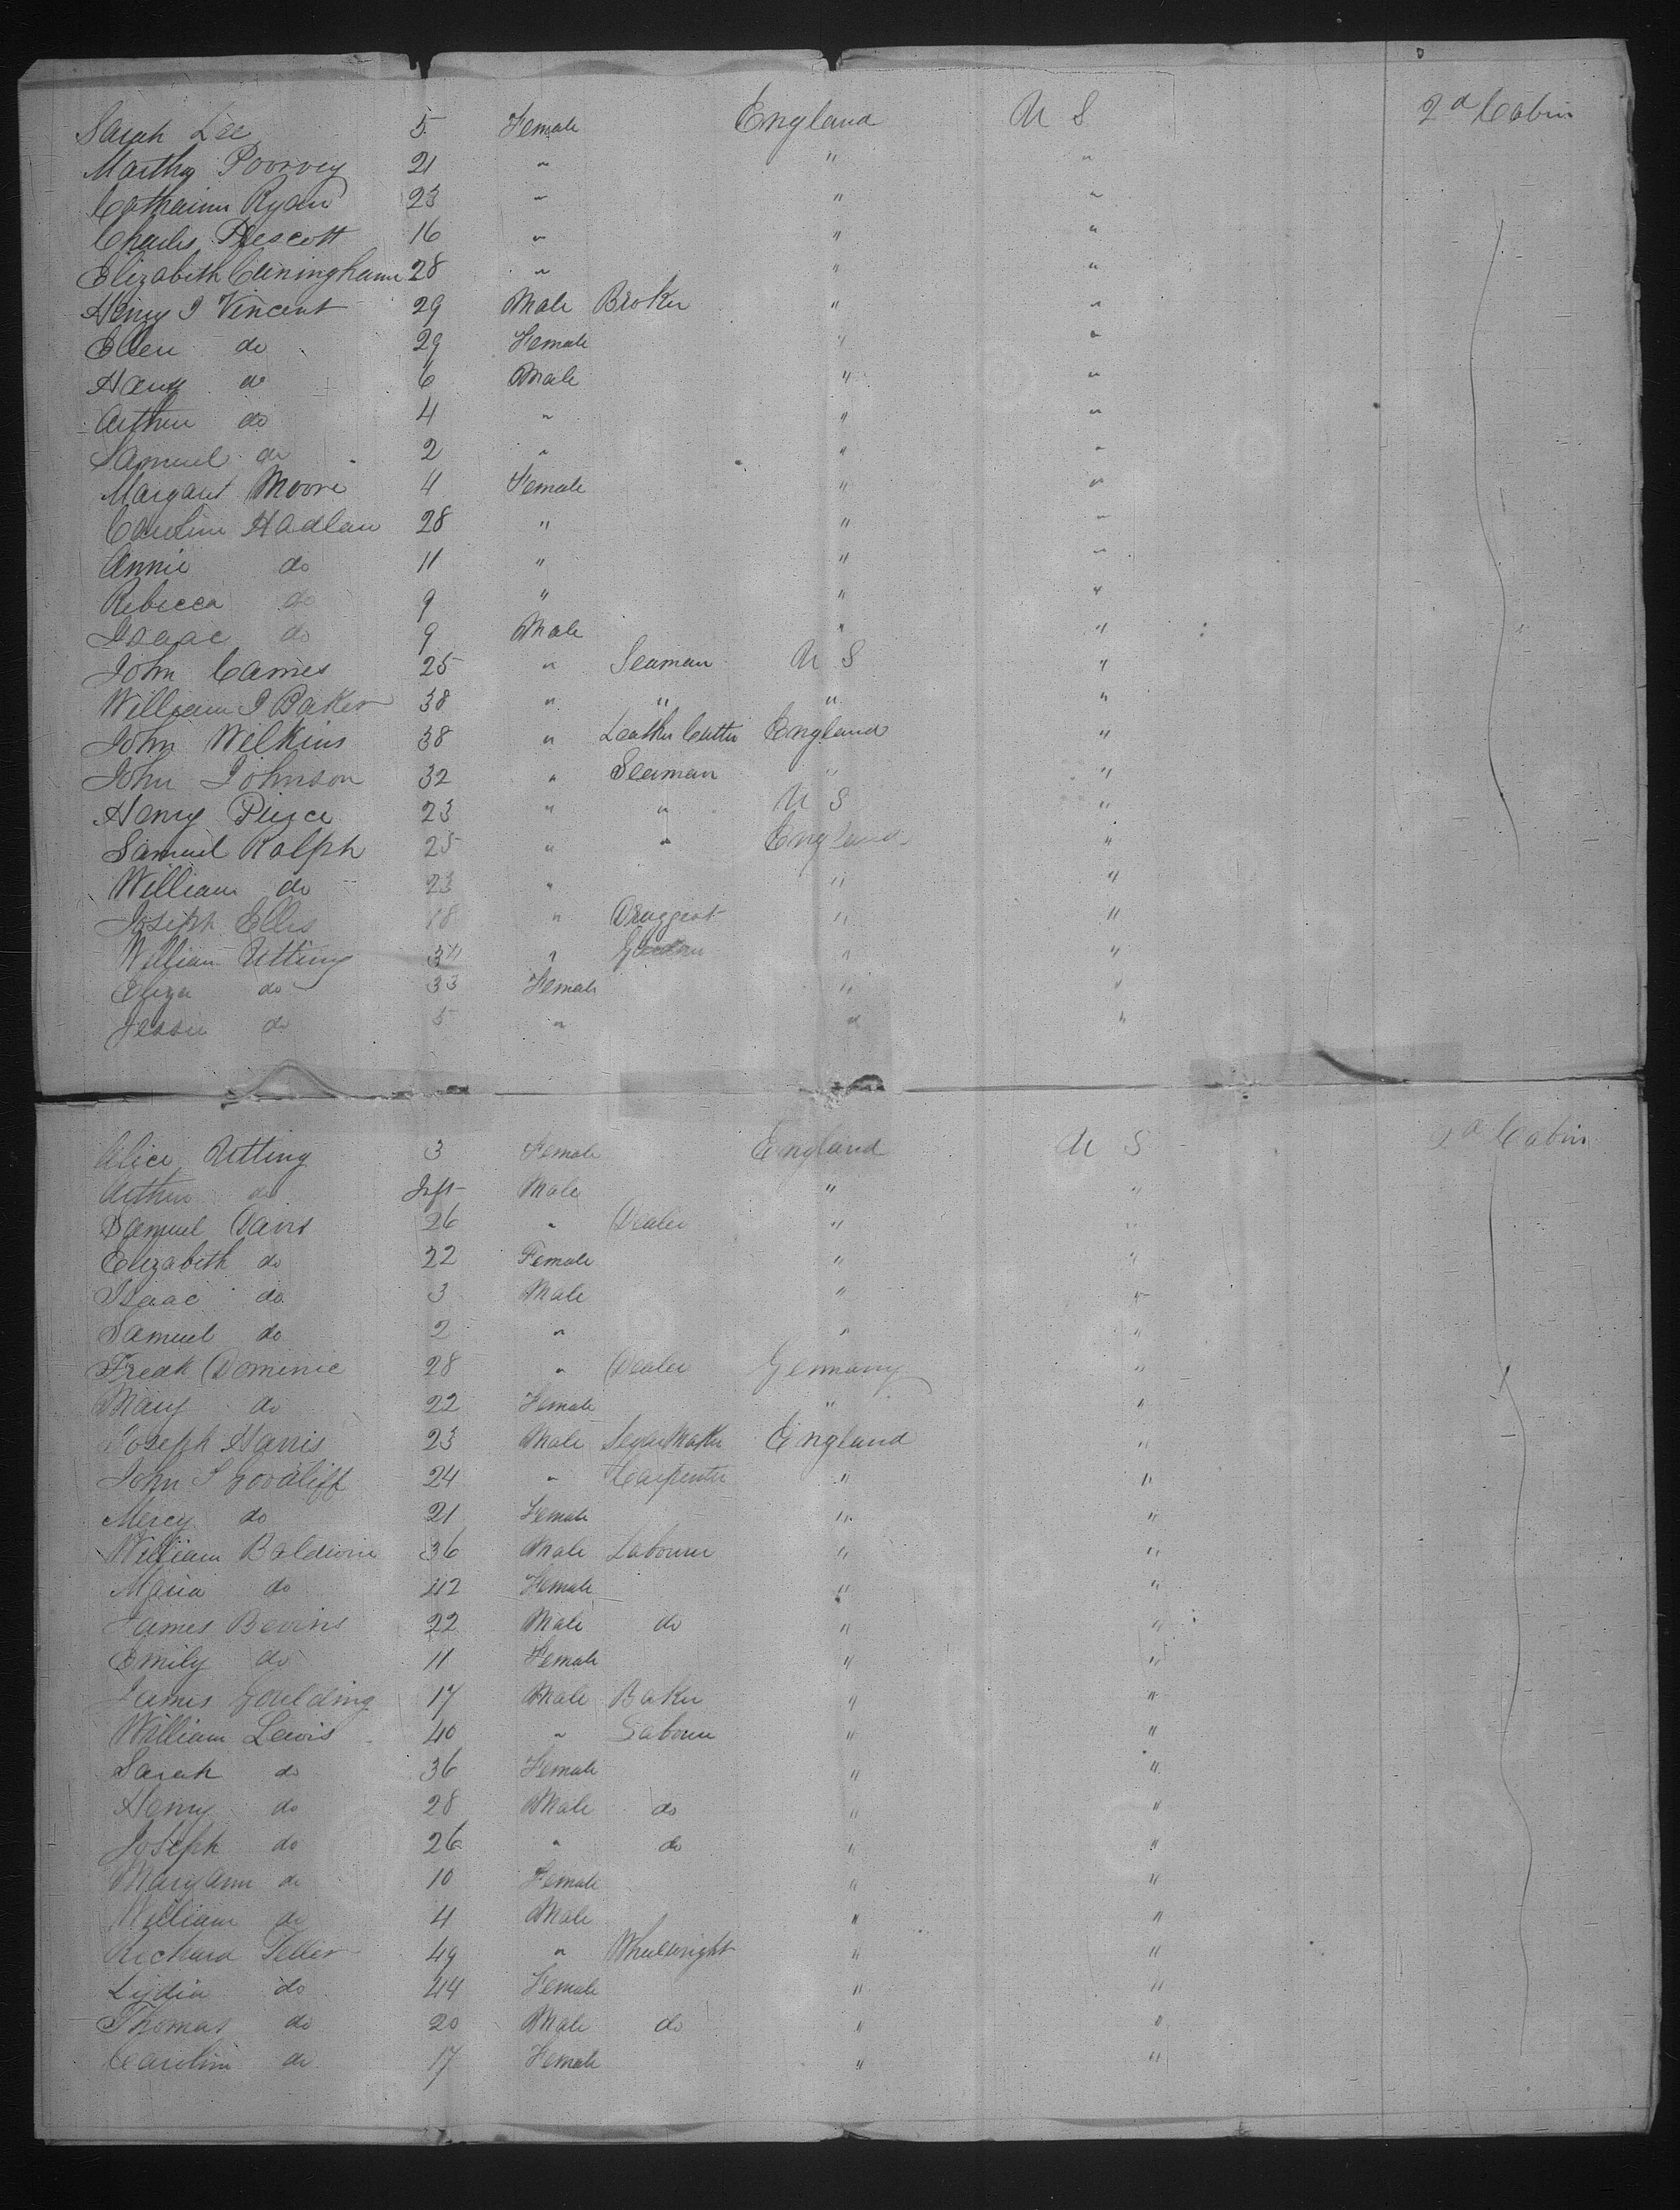 Sarah Lee 5 Female England U S 2d Cabin
Martha Poorvey 21 " " "
Catharine Ryan 23 " " "
Charles Prescott 16 " " "
Elizabeth Cuningham 28 " " "
Henry J Vincent 29 Male Broker " "
Ellen do 29 Female " "
Henry do 6 Male " "
Arthur do 4 " " "
Samuel do 2 " " "
Margaret Moore 4 Female " "
Caroline Hadlan 28 " " "
Annie do 11 " " "
Rebecca do 9 " " "
Isaac do 9 Male " "
John Carnes 25 " Seaman U S "
William J Baker 38 " " " "
John Wilkins 38 " Leather Cutter England "
John Johnson 32 " Seaman " "
Henry Pierce 23 " " U S "
Samuel Ralph 25 " " England "
William do 23 " " "
Joseph Ellis 18 " Druggest " "
William Utting 34 " " "
Eliza do 33 Female " "
Jessie do 5 " " "
Alice Utting 3 Female England U S 2d Cabin
Arthur do Inft Male " "
Samuel Davis 26 " Dealer " "
Elizabeth do 22 Female " "
Isaac do 3 Male " "
Samuel do 2 " " "
Fredk Domenic 28 " Dealer Germany "
Mary do 22 Female " "
Joseph Harris 23 Male Segar Maker England "
John S 24 " Carpenter " "
Mercy do 21 Female " "
William Baldwin 36 Male Labourer " "
Maria do 42 Female " "
James Bevins 22 Male do " "
Emily do 11 Female " "
James Goulding 17 Male Baker " "
William Lewis 40 " Labourer " "
Sarah do 36 Female " "
Henry do 28 Male do " "
Joseph do 26 " do " "
Maryann do 10 Female " "
William do 4 Male " "
Richard 49 " Wheelwright " "
Lydia do 44 Female " "
Thomas do 20 Male do " "
Caroline do 17 Female " "